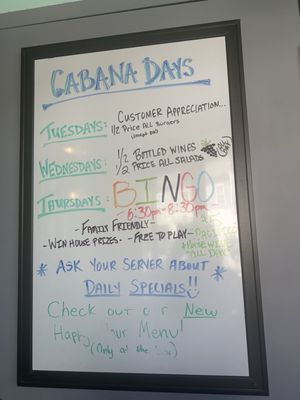 CABANA DAYS
TUESDAYS: CUSTOMER APPRECIATION...
1/2 PRICE ALL BURGERS
WEDNESDAYS: 1/2 BOTTLED WINES
1/2 PRICE ALL SALADS
THURSDAYS: BINGO
6:30pm - 8:30pm
- FAMILY FRIENDLY -
- WIN HOUSE PRIZES - - FREE TO PLAY -
HOUSE WINE
ALL DAY
* ASK YOUR SERVER ABOUT *
DAILY SPECIALS!!
Check out our New
Happy Hour Menu!
(Only at the